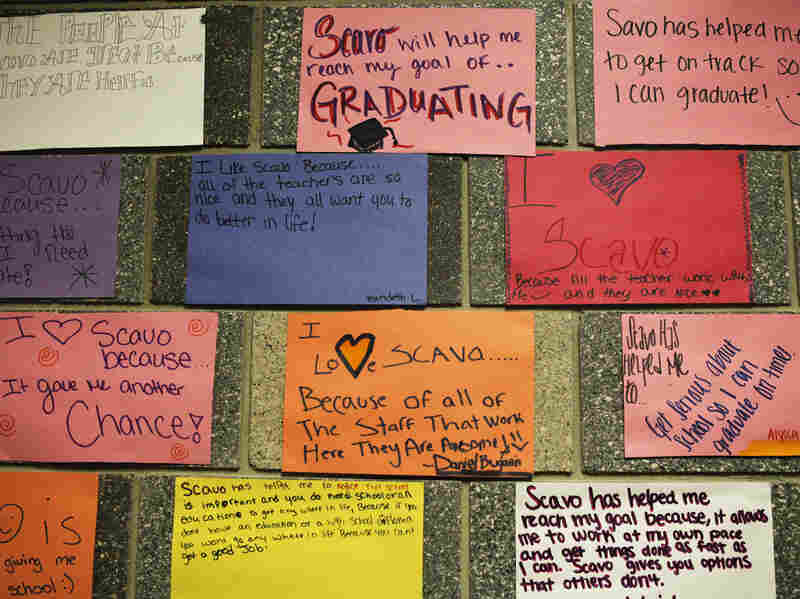 THE PEOPLE AT
SCAVO ARE GREAT Because
THEY ARE Helpful
Scavo will help me
reach my goal of..
GRADUATING
Savo has helped me
to get on track so
I can graduate!
Scavo
cause...
thing to
I need
ate!
I Like Scavo Because.....
all of the teacher's are so
nice and they all want you to
do better in life!
I
Scavo
Because All the teacher work with
me and they are nice
I Scavo
because...
It gave me another
Chance!
I
Love SCAVO.....
Because of all of
The Staff That Work
Here They Are Awesome!!
-Daniel
Scavo Has
Helped Me
to...
Get serious about
school so I can
graduate on time!
Alyssa
is
giving me
school:)
Scavo has helped me to notice that school
is important and you do need school or an
education to get any where in life, Because if you
dont have an education or a high school diploma
you wont go any where in life Because you can't
get a good job!
Scavo has helped me
reach my goal because, it allows
me to work at my own pace
and get things done as fast as
I can. Scavo gives you options
that others don't.